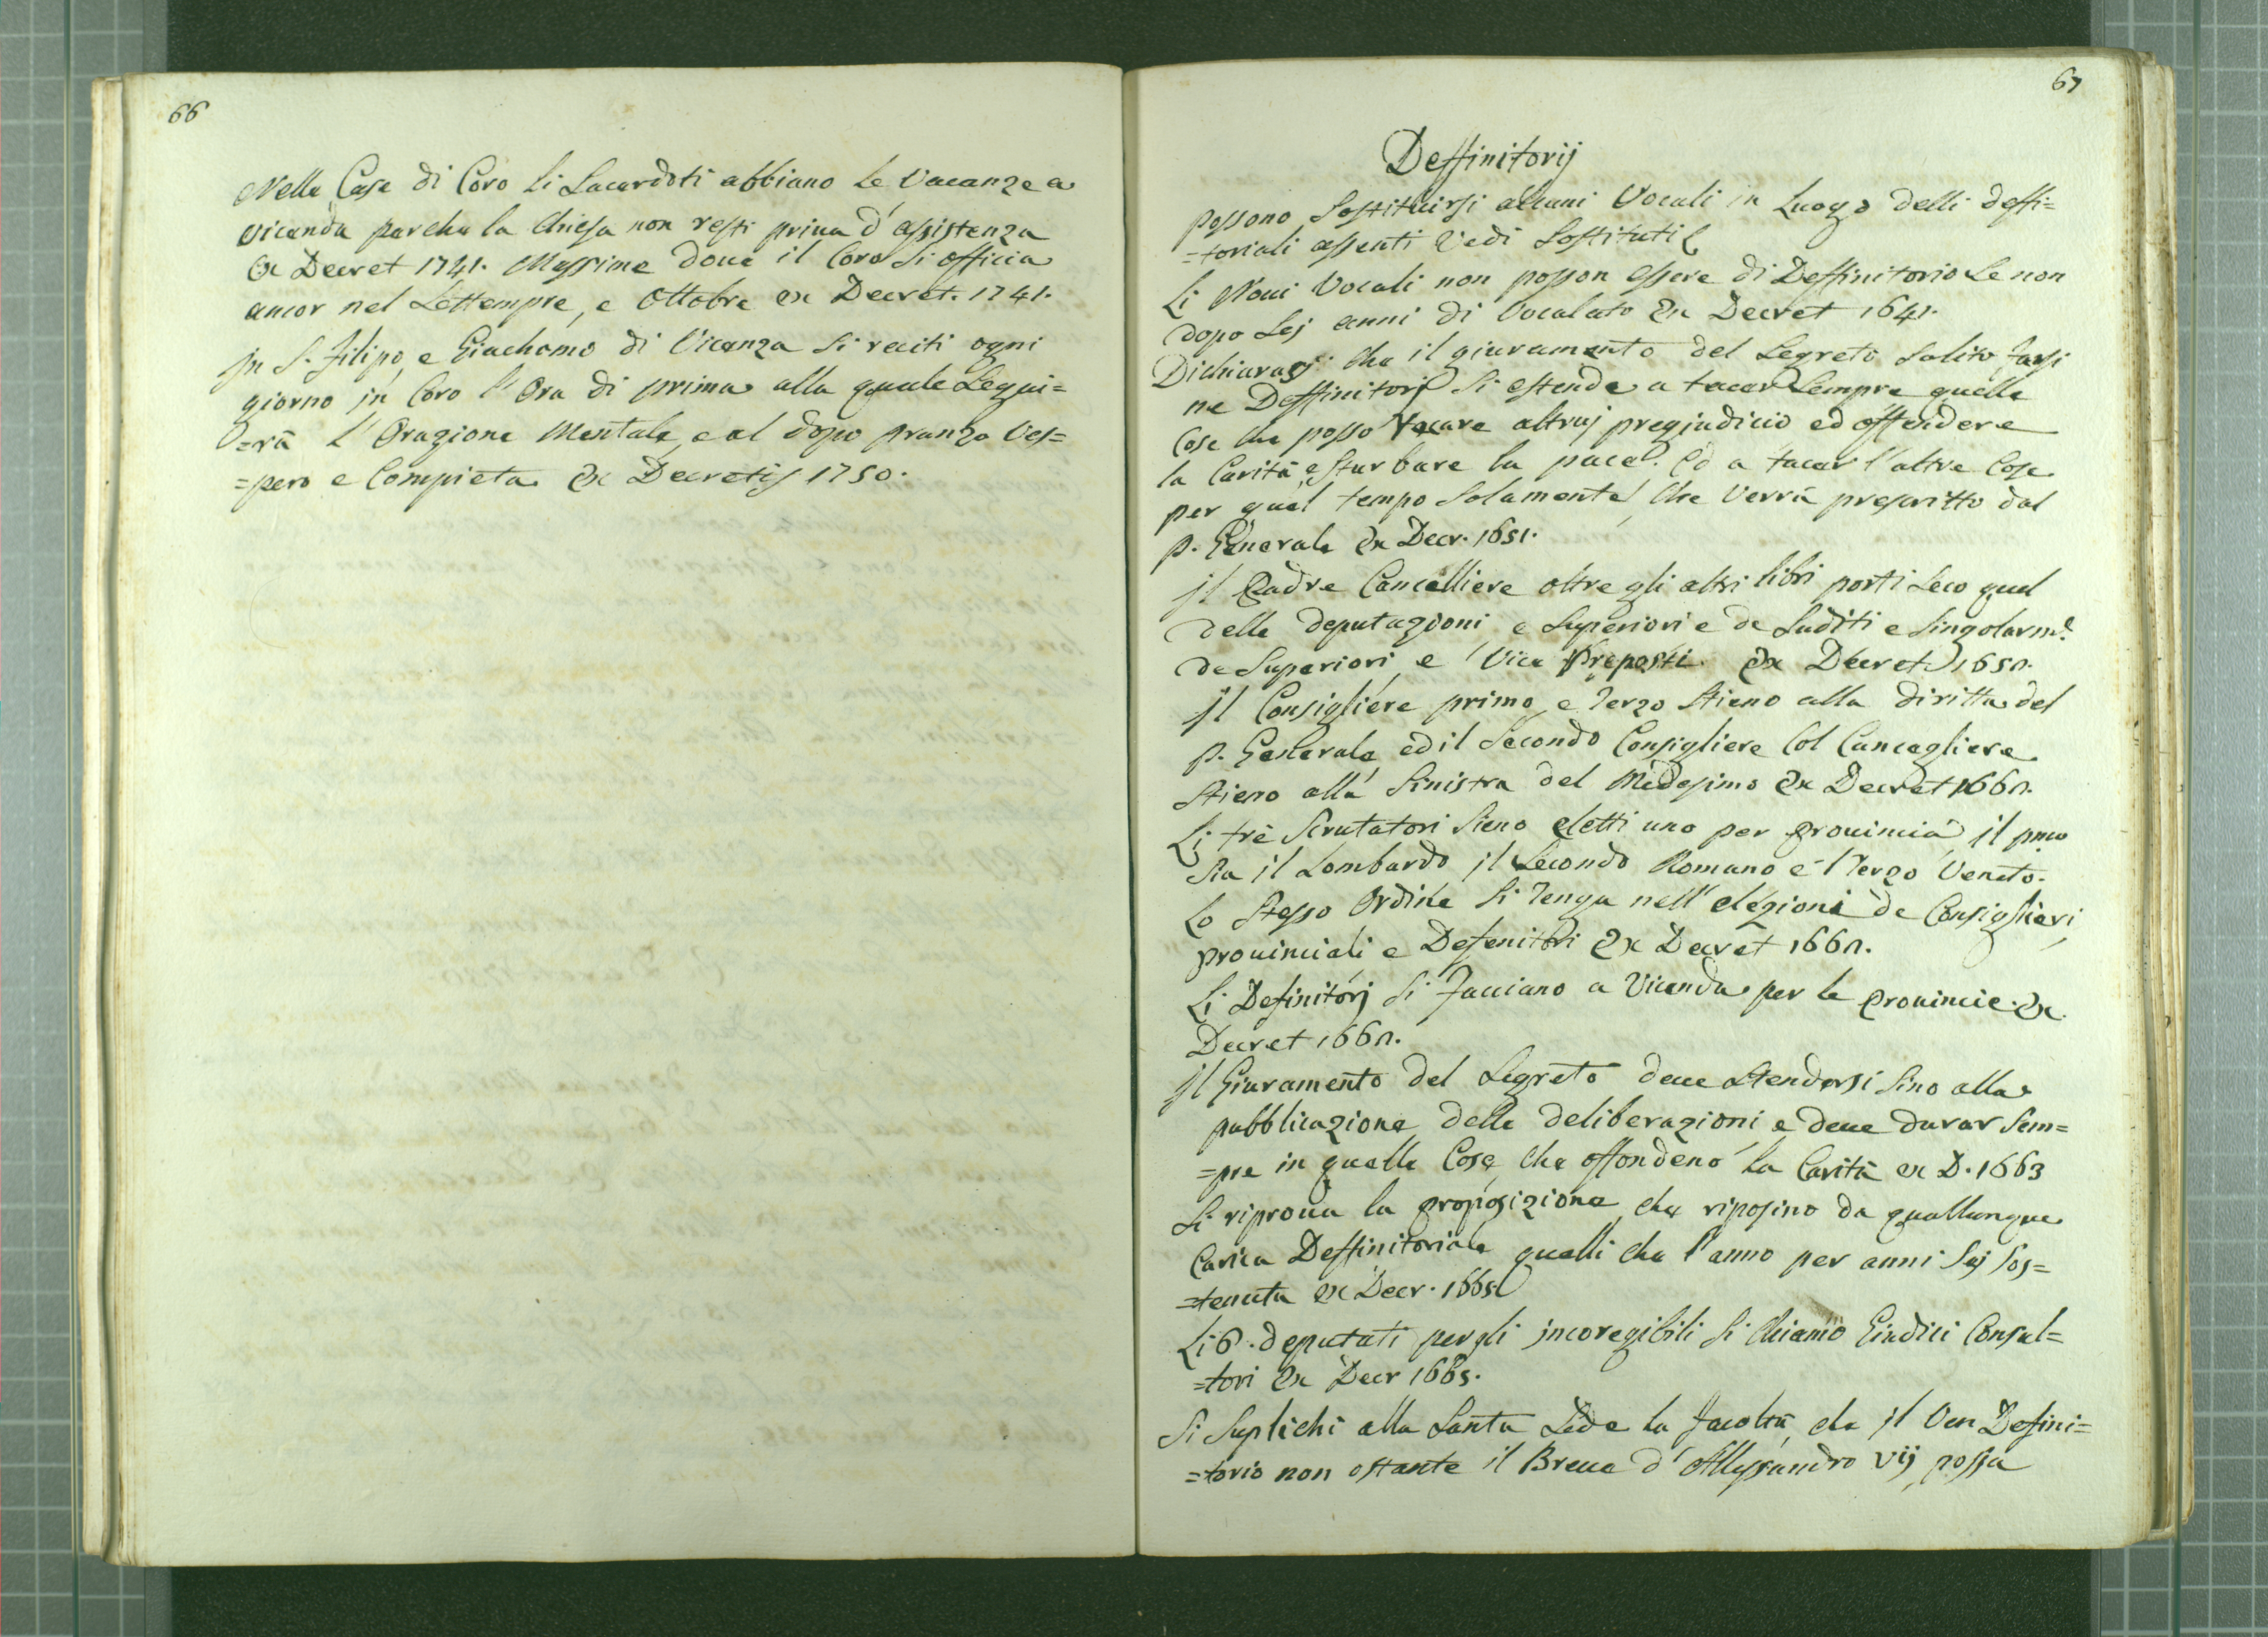 66
Nelle Case di Coro li Sacerdoti abbiano le Vacanze a
vicenda perche la Chiesa non resti priva d'assistenza
Ex Decret 1741. Massime dove il Coro si officia
ancor nel Settempre, e Ottobre ex Decret. 1741.
jn S. Filipo, e Giachomo di Vicenza si reciti ogni
giorno jn Coro l'Ora di prima alla quale Segui=
=rà l'Oragione Mentale, e al dopo pranzo Ves=
=pero e Compieta Ex Decretis 1750.
67
Deffinitorij
possono Sostituirsi alcuni Vocali in Luogo delli deffi=
=toriali assenti Vedi Sostituti
Li Novi Vocali non posson essere di Deffinitorio Se non
dopo Sej anni di Vocalato Ex Decret 1641.
Dichiarasj che il giuramento del Segreto Solito farsi
ne Deffinitorj Si estende a tacer Sempre quelle
Cose che posso recare altruj pregiudicio ed offendere
la Carità, e sturbare la pace. Ed a tacer l'altre Cose
per quel tempo Solamente, che Verrà prescritto dal
p. Generale Ex Decr. 1651.
jl Padre Cancelliere oltre gli altri libri porti Seco quel
delle deputazioni e Superiori e de Suditi e Singolarm.e
de Superiori, e Vice Preposti. Ex Decret 1650.
jl Consigliere primo, e Terzo Stieno alla diritta del
p. Generale, ed il Secondo Consigliere Col Cancegliere
Stieno alla Sinistra del Medesimo Ex Decret 1660.
Li trè Scrutatori Sieno eletti uno per provincia, il pmo
Sia il Lombardo jl Secondo Romano e 'l Terzo Veneto.
Lo Stesso Ordine Si Tenga nell'elezioni de Consiglieri
provinciali e Defenitori Ex Decret 1660.
Li Definitorj Si Facciano a Vicenda per le provincie. Ex
Decret 1660.
jl Giuramento del Segreto deve Stendersi Sino alla
pubblicazione delle deliberazioni e deve durar Sem=
=pre in quelle Cose, che offondeno la Carità ex D. 1663
Si riprova la proposizione, che riposino da quallunque
Carica Deffinitoriale quelli che l'anno per anni Sej Sos=
=tenuta ex Decr. 1665
Li 6. deputati per gli jncoregibili Si Chiamo Giudici Consul=
=tori Ex Decr 1665.
Si Suplichi alla Santa Sede la Facoltà, che jl Ven Defini=
=torio non ostante il Breve d'Allessandro vij possa